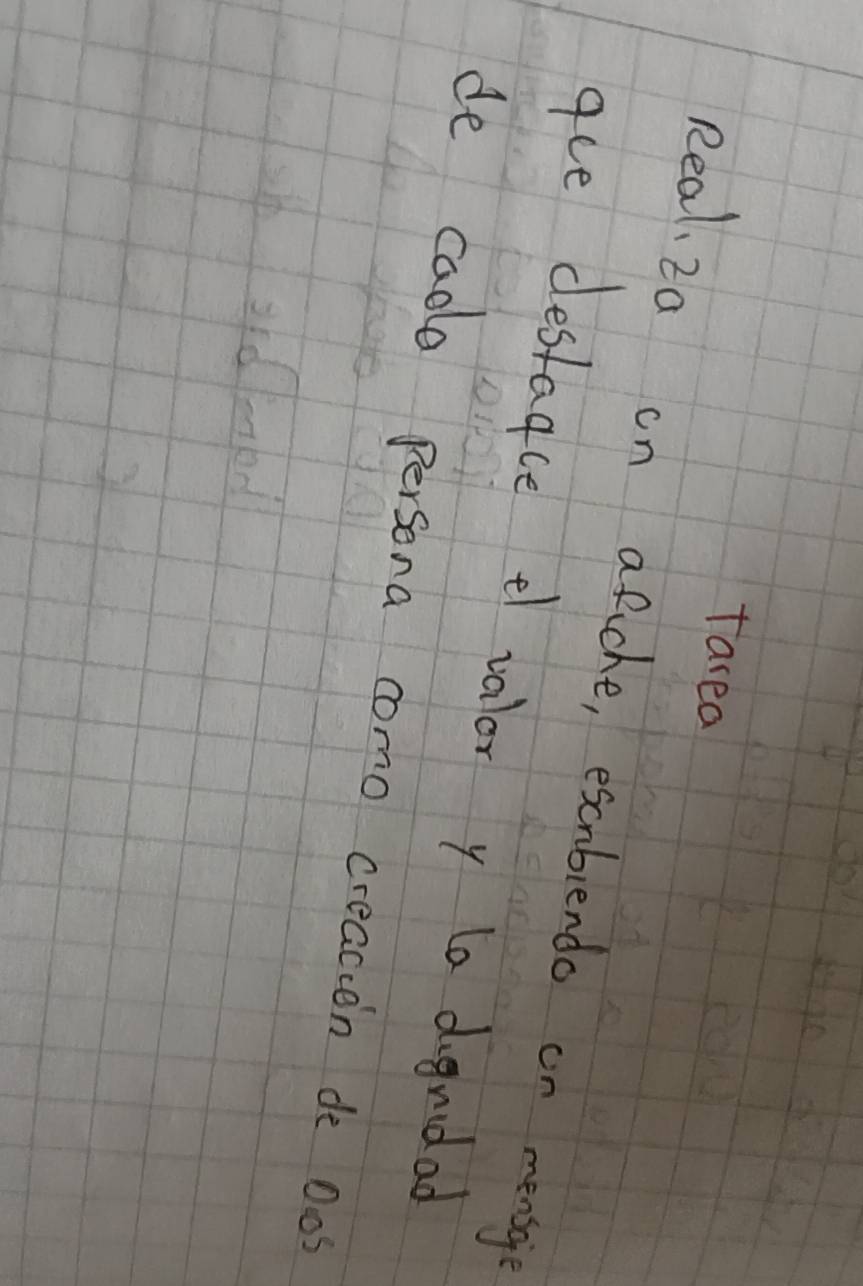 Tarea
Realiza un afiche, escribiendo un mensaje
que destaque el valor y la dignidad
de cada Persona como creación de Dios